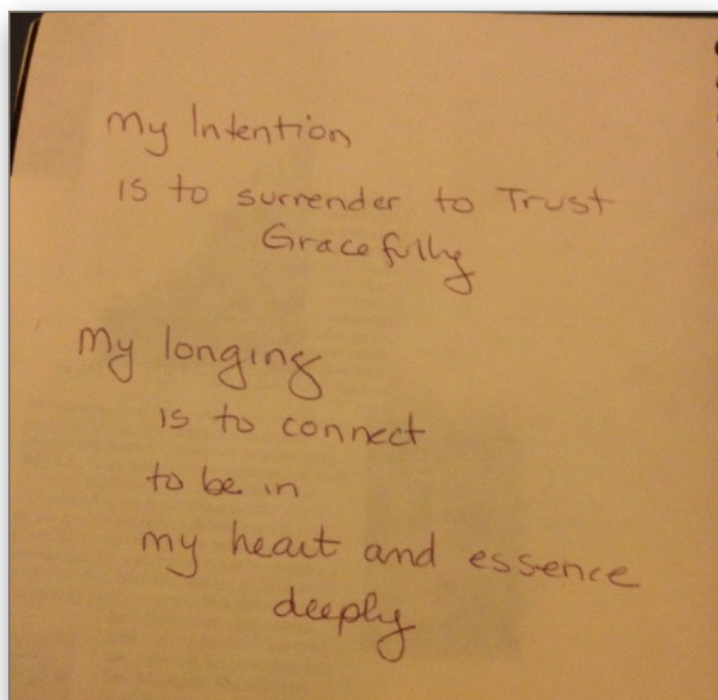 My Intention
is to surrender to Trust
Gracefully
My longing
is to connect
to be in
my heart and essence
deeply